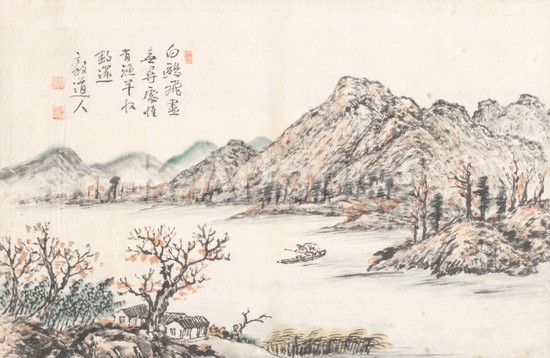 白鷗飛盡
無尋處惟
有漁竿收
釣還
道人